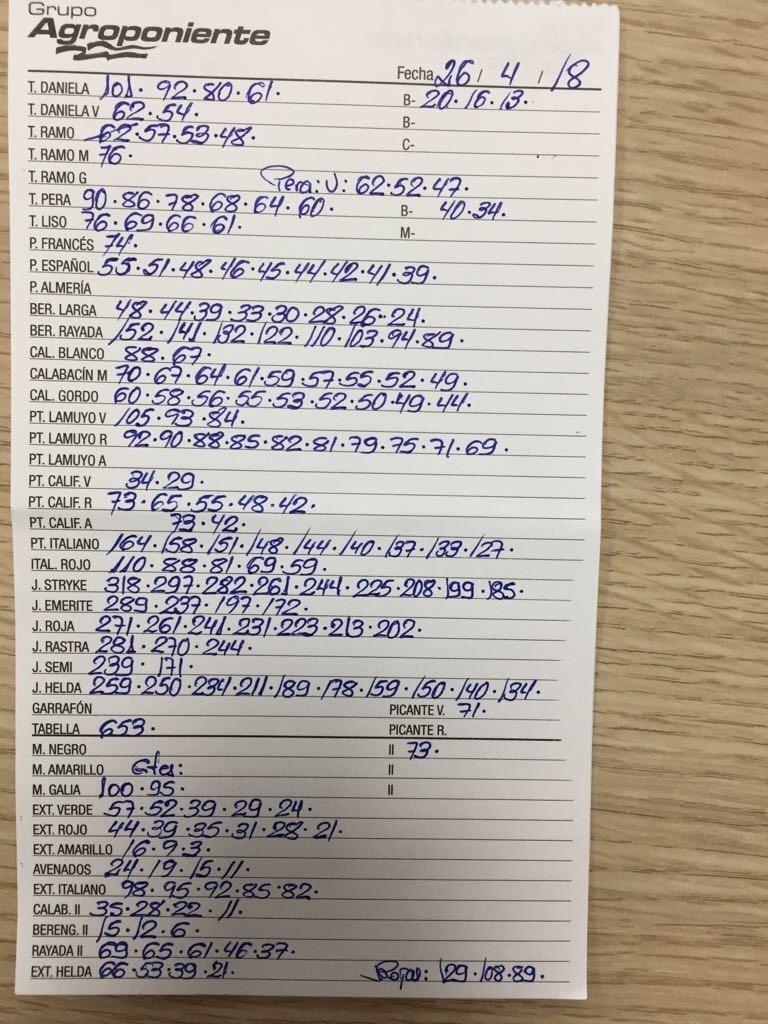 Grupo
Agroponiente
Fecha 26 / 4 / 18
T. DANELA 101. 92. 80. 61. B- 20. 16. 13.
T. DANIELA V 62. 54. B-
T. RAMO 62. 57. 53. 48. C-
T. RAMO M 76.
T. RAMO G Pera: V: 62. 52. 47.
T. PERA 90. 86. 78. 68. 64. 60. B- 40. 34.
T. LISO 76. 69. 66. 61. M-
P. FRANCÉS 74.
P. ESPAÑOL 55. 51. 48. 46. 45. 44. 42. 41. 39.
P. ALMERÍA
BER. LARGA 48. 44. 39. 33. 30. 28. 26. 24.
BER. RAYADA 152. 141. 132. 122. 110. 103. 94. 89.
CAL. BLANCO 88. 67.
CALABACÍN M 70. 67. 64. 61. 59. 57. 55. 52. 49.
CAL. GORDO 60. 58. 56. 55. 53. 52. 50. 49. 44.
PT. LAMUYO V 105. 93. 84.
PT. LAMUYO R 92. 90. 88. 85. 82. 81. 79. 75. 71. 69.
PT. LAMUYO A
PT. CALIF. V 34. 29.
PT. CALIF. R 73. 65. 55. 48. 42.
PT. CALIF. A 73. 42.
PT. ITALIANO 164. 158. 151. 148. 144. 140. 137. 133. 127.
ITAL. ROJO 110. 88. 81. 69. 59.
J. STRYKE 318. 297. 282. 261. 244. 225. 208. 199. 185.
J. EMERITE 289. 237. 197. 172.
J. ROJA 271. 261. 241. 231. 223. 213. 202.
J. RASTRA 281. 270. 244.
J. SEMI 239. 171.
J. HELDA 259. 250. 234. 211. 189. 178. 159. 150. 140. 134.
GARRAFÓN PICANTE V. 71.
TABELLA 653. PICANTE R.
M. NEGRO II 73.
M. AMARILLO II
M. GALIA 100. 95. II
EXT. VERDE 57. 52. 39. 29. 24.
EXT. ROJO 44. 39. 35. 31. 28. 21.
EXT. AMARILLO 16. 9. 3.
AVENADOS 24. 19. 15. 11.
EXT. ITALIANO 98. 95. 92. 85. 82.
CALAB. II 35. 28. 22. 11.
BERENG. II 15. 12. 6.
RAYADA II 69. 65. 61. 46. 37.
EXT. HELDA 66. 53. 39. 21. Rojas: 129. 108. 89.